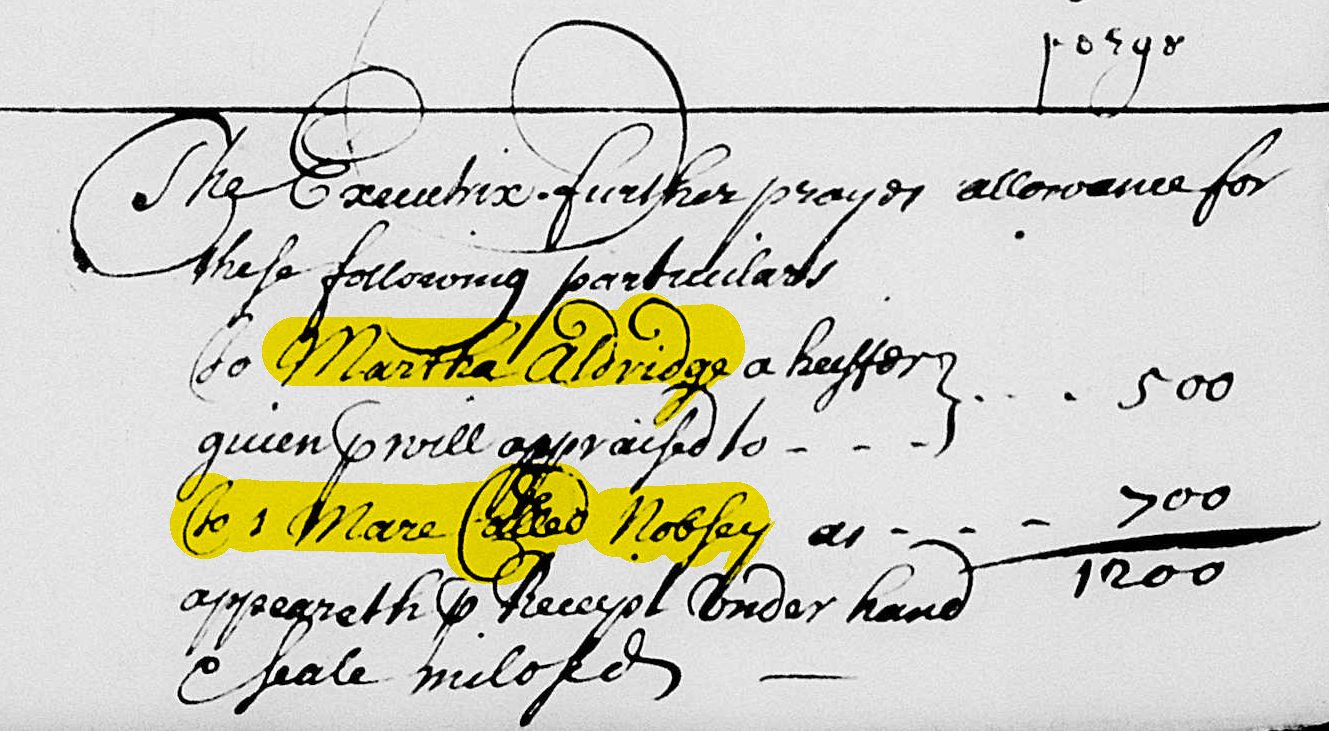 The Executrix further prayes allowance for
these following particulars
to Martha Aldridge a heyffer } . . . 500
giuen p will appraised to - - -
to 1 Mare Called Nobsey as - - - 700
1200
appeareth p Receipt Under hand
& seale inclosed —